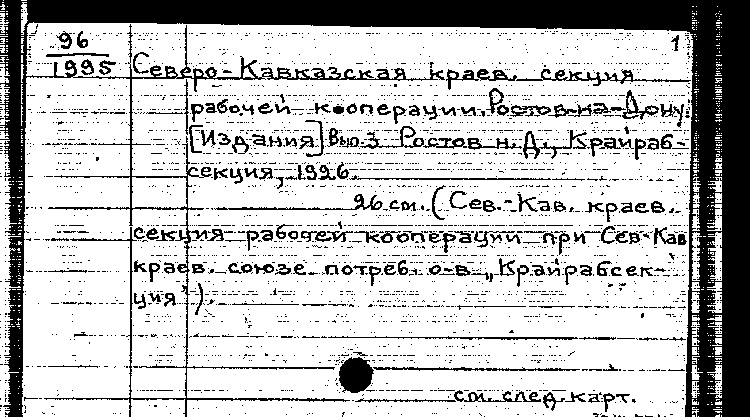 96
1995
1
Северо-Кавказская краев. секция
рабочей кооперации. Ростов-на-Дону.
[Издания] Вып.3 Ростов н. Д., Крайраб-
секция, 1926.
26 см. (Сев.-Кав. краев.
секция рабочей кооперации при Сев-Кав
краев. союзе потреб. о-в „Крайрабсек-
ция").
см. след. карт.